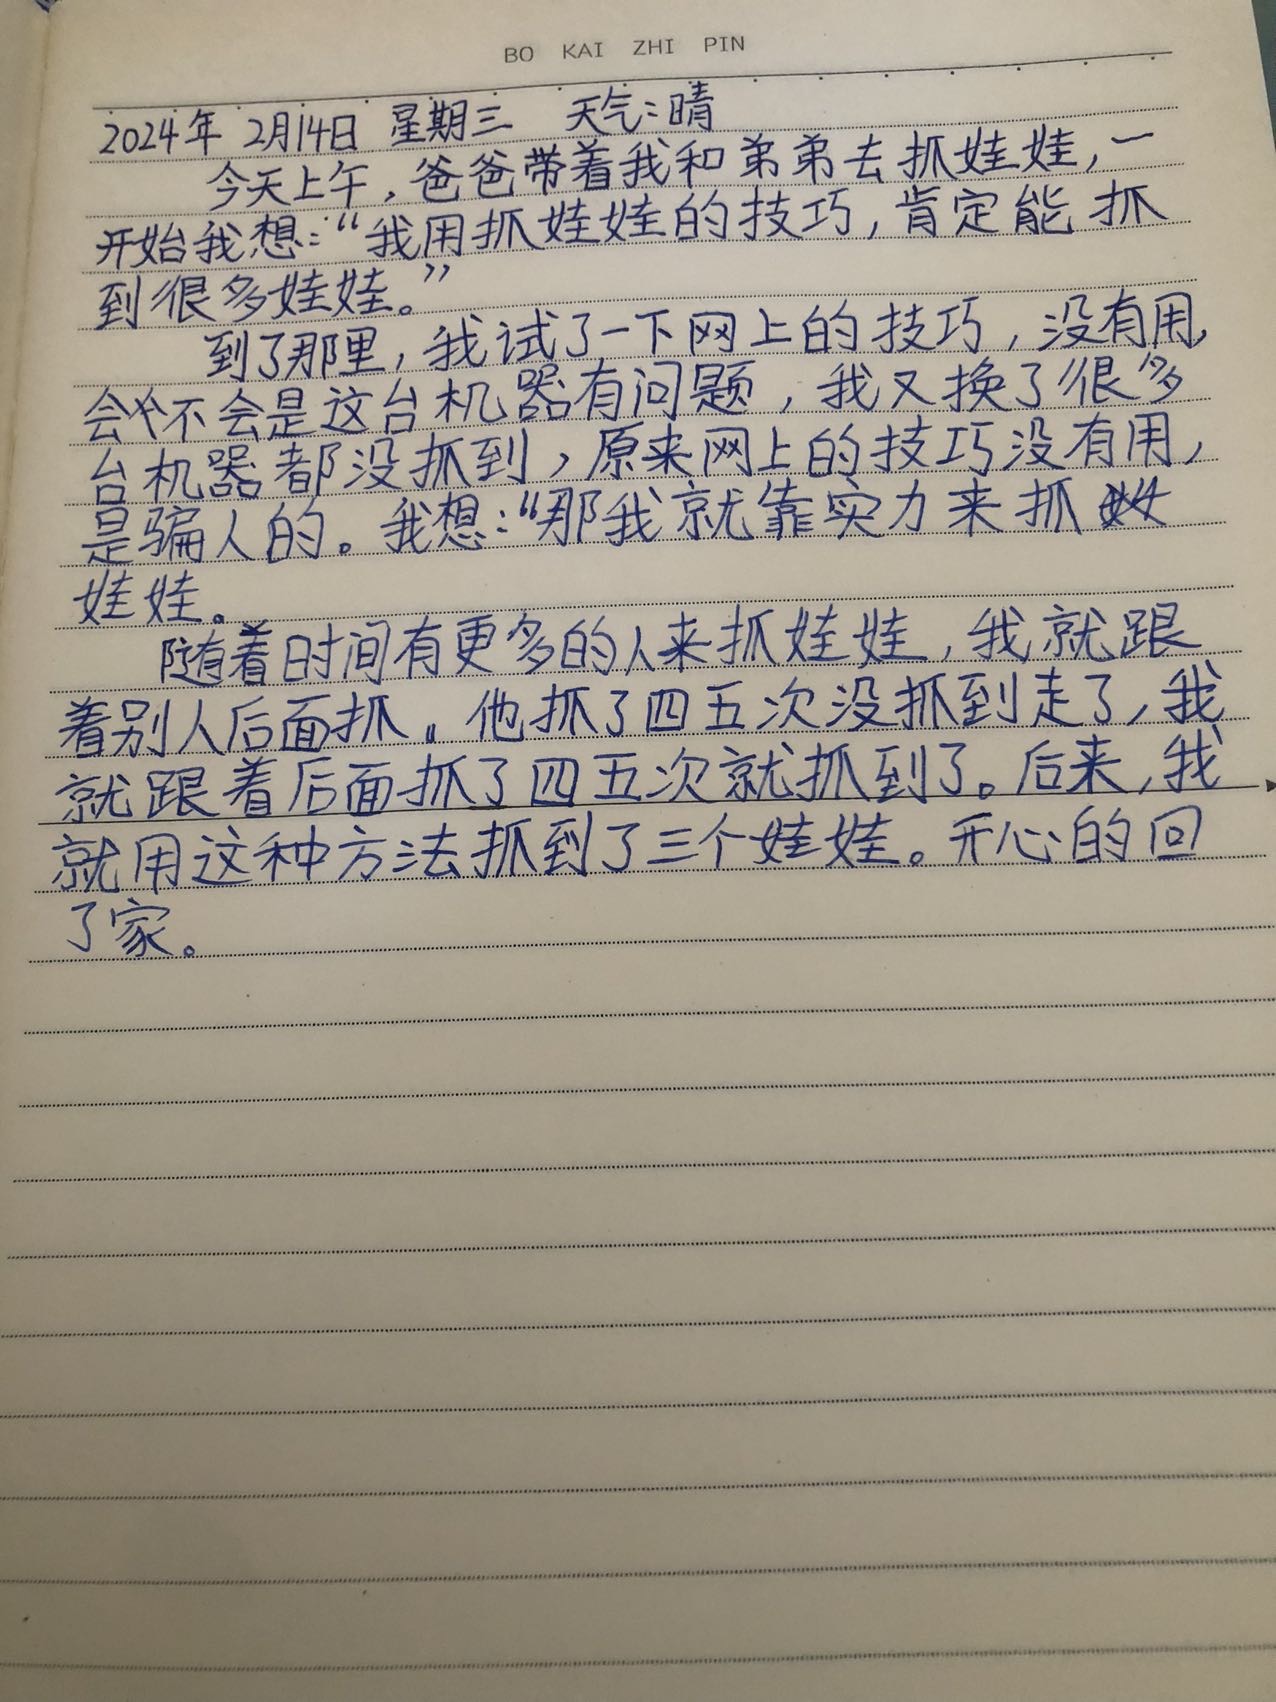 BO KAI ZHI PIN
2024年 2月14日 星期三 天气:晴
今天上午,爸爸带着我和弟弟去抓娃娃,一
开始我想:“我用抓娃娃的技巧,肯定能抓
到很多娃娃。”
到了那里,我试了一下网上的技巧,没有用,
会不会是这台机器有问题,我又换了很多
台机器都没抓到,原来网上的技巧没有用,
是骗人的。我想:“那我就靠实力来抓
娃娃。
随着时间有更多的人来抓娃娃,我就跟
着别人后面抓。他抓了四五次没抓到走了,我
就跟着后面抓了四五次就抓到了。后来,我
就用这种方法抓到了三个娃娃。开心的回
了家。